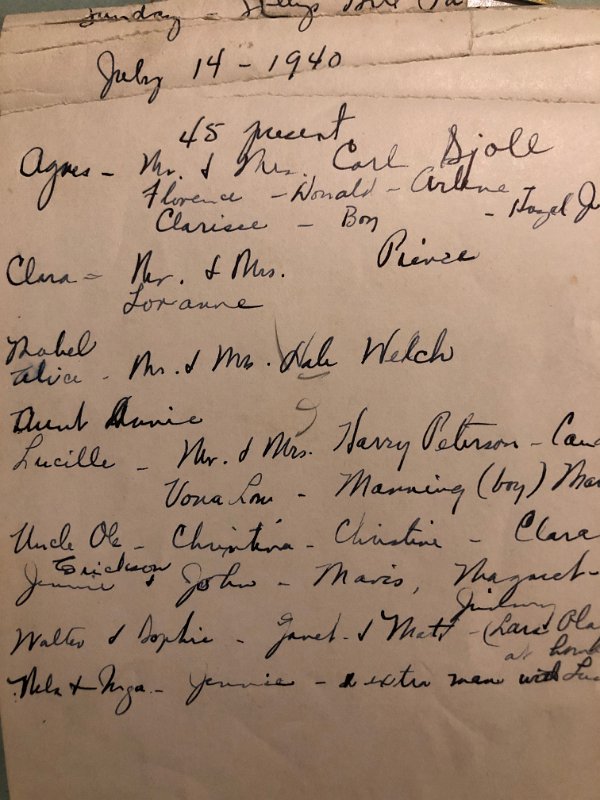 Sunday -
July 14 - 1940
45 present
Agnes - Mr. & Mrs. Carl Bjoll
Florence - Donald - Arlene
Clarisse - Boy - Hazel
Clara - Mr. & Mrs. Pierce
Loranne
Mabel
Alice - Mr. & Mrs. Dale Welch
Aunt Annie
Lucille - Mr. & Mrs. Harry Peterson -
Vona Lou - Manning (boy)
Uncle Ole - Christina - Christine - Clara
Erickson
Jennie & John - Mavis, Magaret -
Jimmy
Walter & Sophie - Janet & Matt - (Lars
at
Nels & Inga - Jennie - extra man with